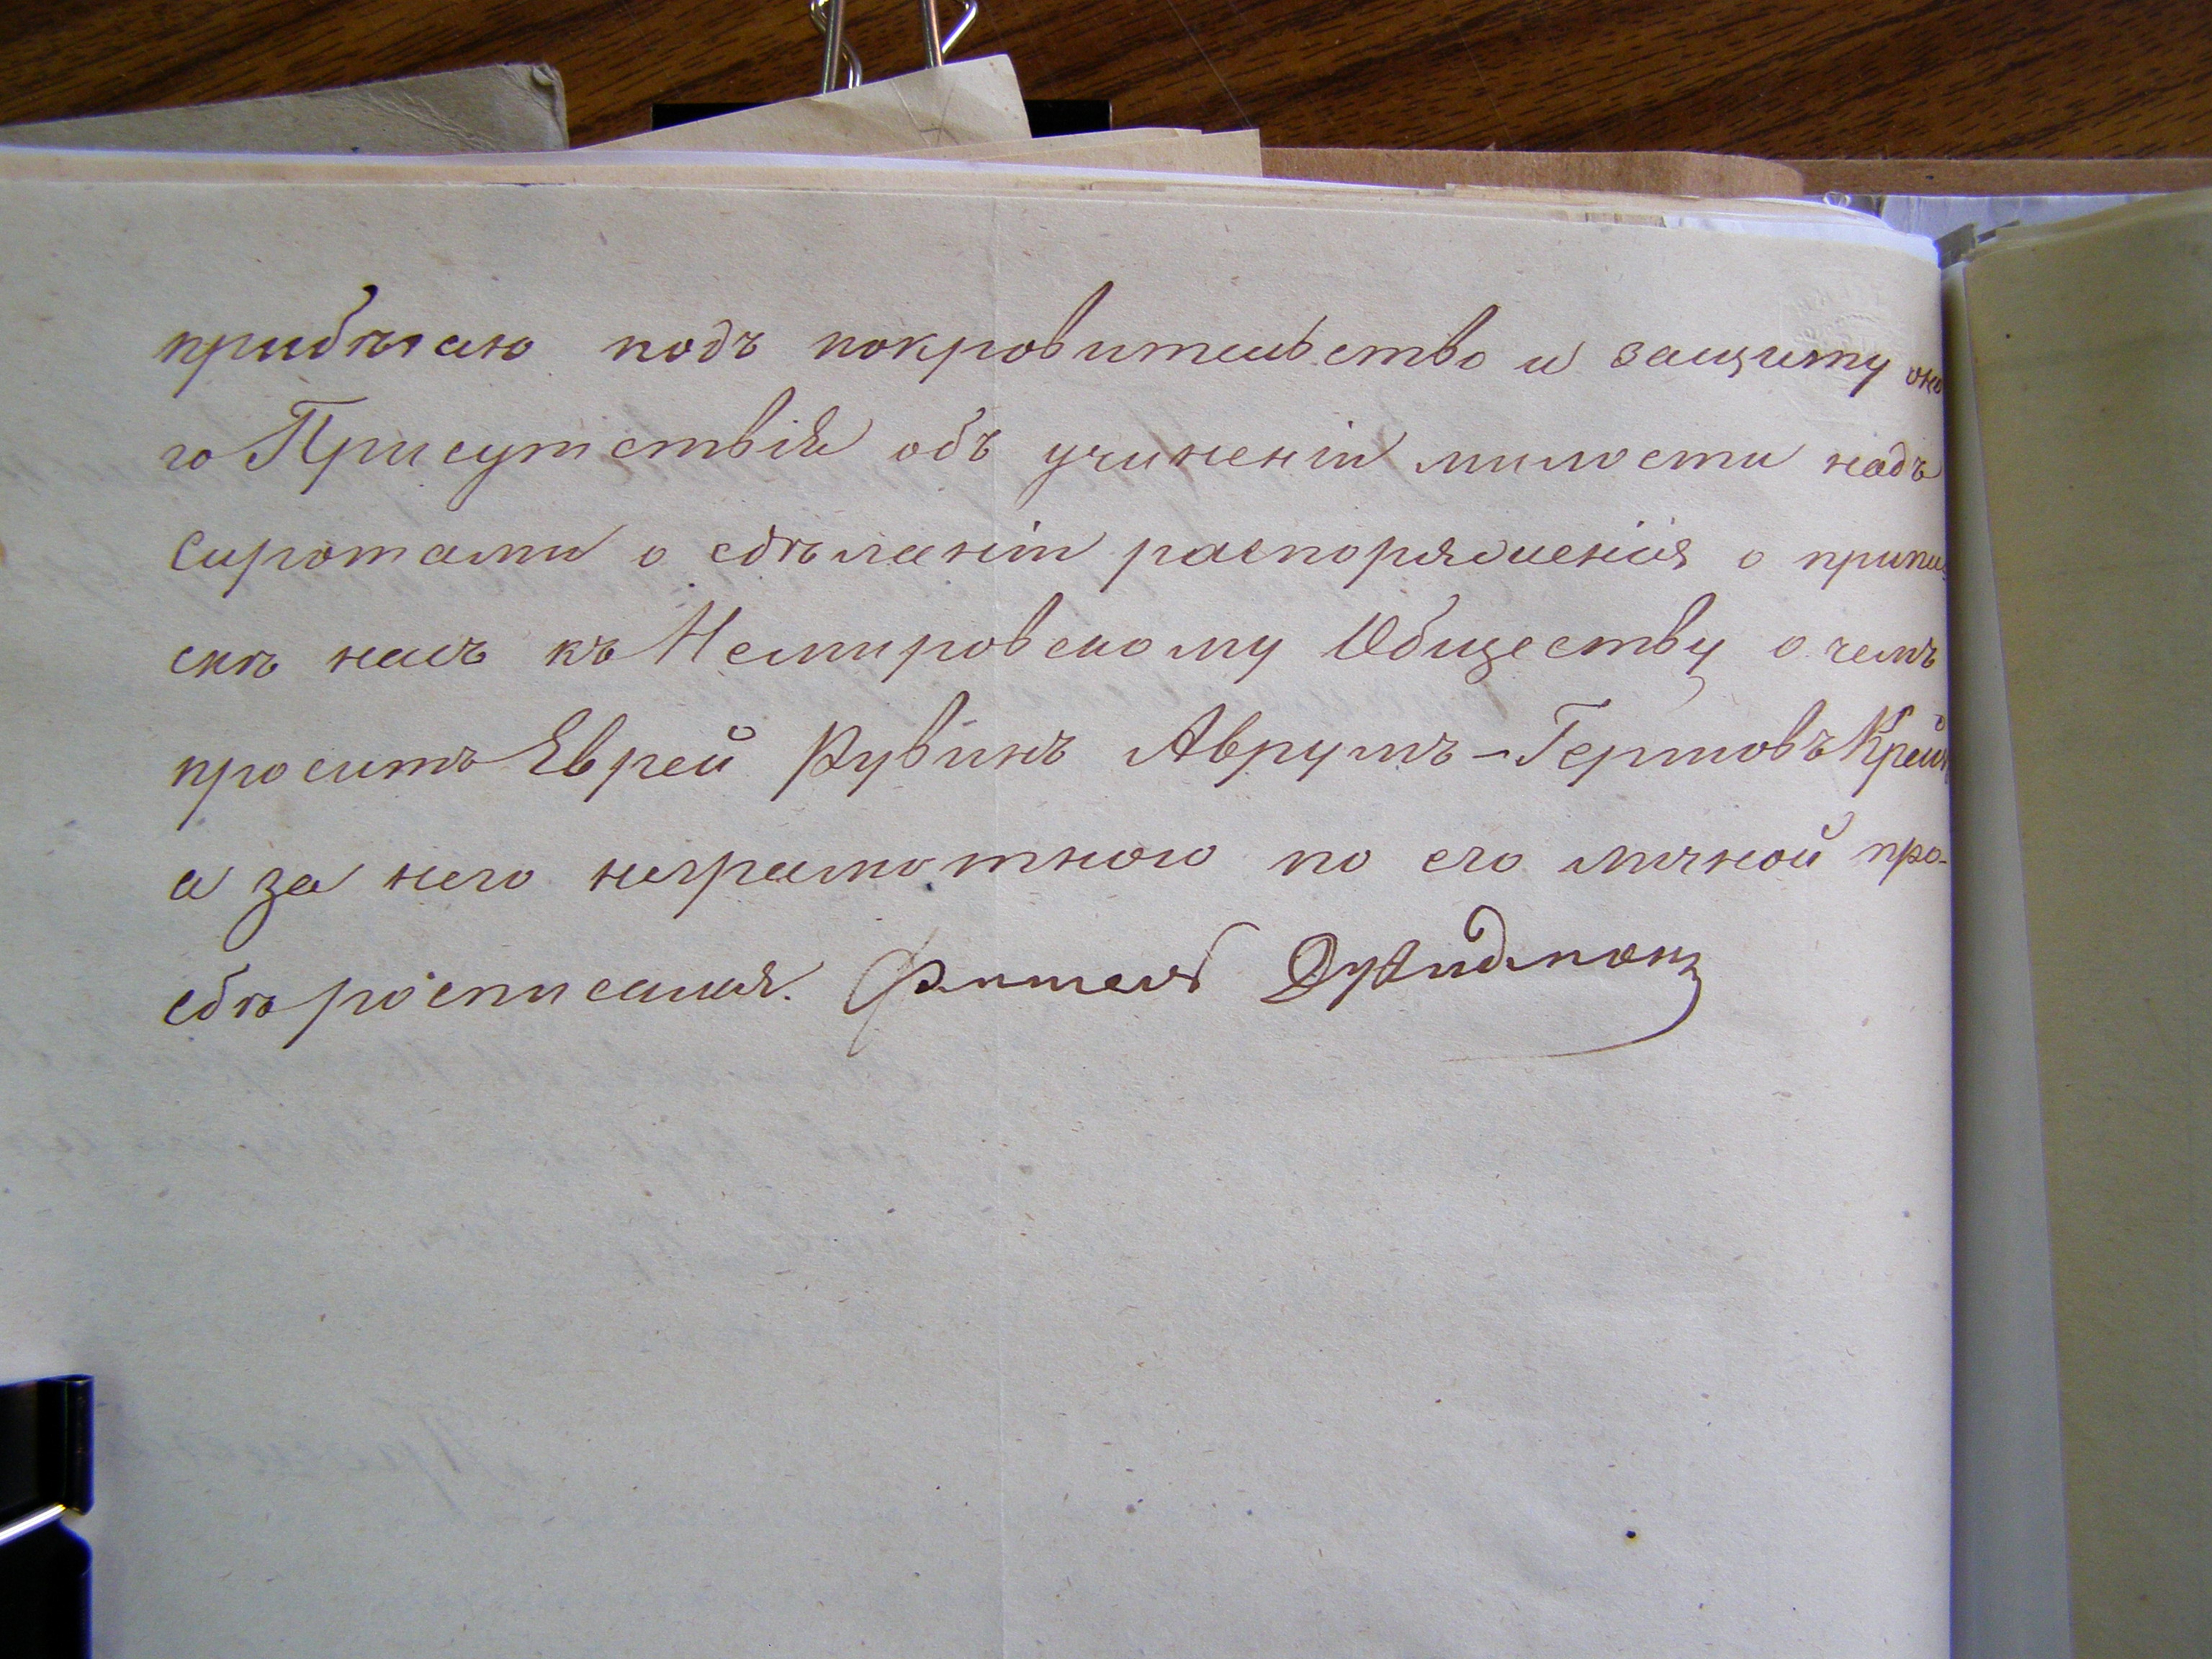 прибѣгаю подъ покровительство и защиту оно
го Присутствія объ учиненіи милости надъ
Сиротами о сдѣланіи распоряженія о припи-
скѣ насъ къ Немировскому Обществу о чемъ
проситъ Еврей Рувинъ Аврумъ-Гершовъ Крейн
а за него неграмотного по его личной про-
сбѣ росписался.